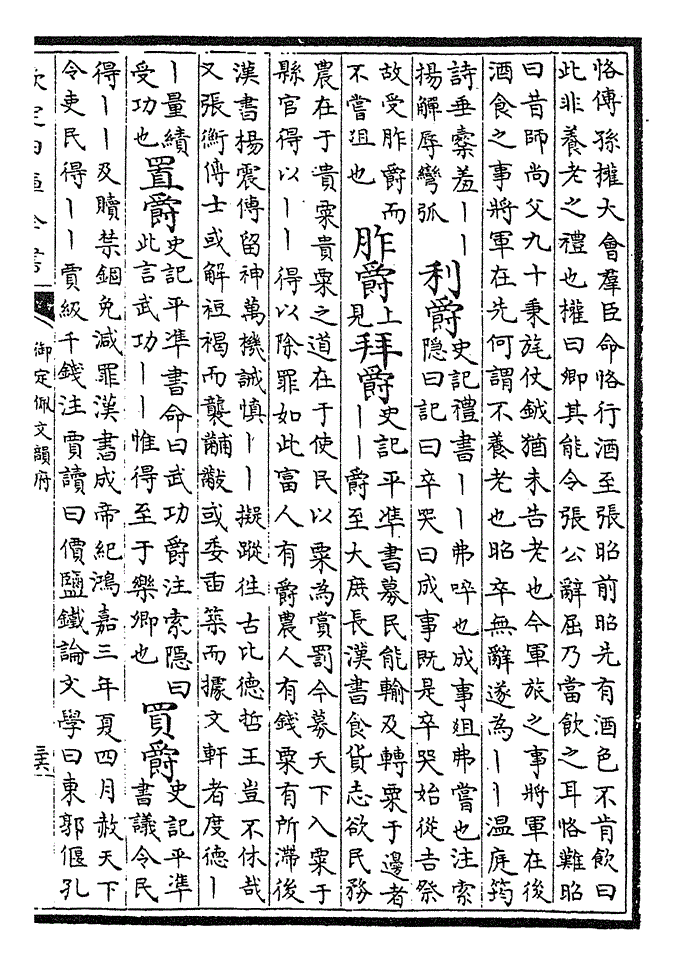 恪傳孫權大㑹羣臣命恪行酒至張昭前昭先有酒色不肯飲曰
此非養老之禮也權曰卿其能令張公辭屈乃當飲之耳恪難昭
曰昔師尚父九十秉旄仗鉞猶未告老也今軍旅之事將軍在後
酒食之事將軍在先何謂不養老也昭卒無辭遂為丨丨温庭筠
詩垂櫜羞丨丨
揚觶辱彎弧
利爵
史記禮書丨丨弗啐也成事俎弗嘗也注索
隠曰記曰卒哭曰成事既是卒哭始從吉祭
故受胙爵而
不嘗俎也
胙爵
上
見
拜爵
史記平準書募民能輸及轉粟于邊者
丨丨爵至大庶長漢書食貨志欲民務
農在于貴粟貴粟之道在于使民以粟為賞罰今募天下入粟于
縣官得以丨丨得以除罪如此富人有爵農人有錢粟有所滯後
漢書楊震傳留神萬機誡慎丨丨擬蹤往古比德哲王豈不休哉
又張衡傳士或解裋褐而襲黼黻或委臿築而據文軒者度德丨
丨量績
受功也
置爵
史記平準書命曰武功爵注索隠曰
此言武功丨丨惟得至于樂卿也
買爵
史記平準
書議令民
得丨丨及贖禁錮免減罪漢書成帝紀鴻嘉三年夏四月赦天下
令吏民得丨丨賈級千錢注賈讀曰價鹽鐵論文學曰東郭偃孔
欽定四庫全書
御定佩文韻府